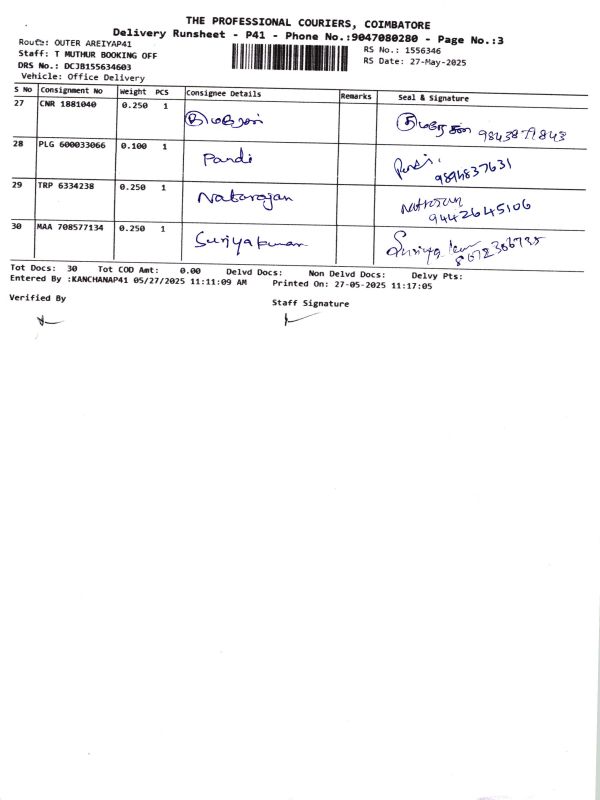 THE PROFESSIONAL COURIERS, COIMBATORE
Delivery Runsheet - P41 - Phone No.:9047080280 - Page No.:3
Route: OUTER AREIYAP41
RS No.: 1556346
Staff: T MUTHUR BOOKING OFF
RS Date: 27-May-2025
DRS No.: DCJB155634603
Vehicle: Office Delivery
S No Consignment No Weight PCS Consignee Details Remarks Seal & Signature
27 CNR 1881040 0.250 1
28 PLG 600033066 0.100 1 Pandi
29 TRP 6334238 0.250 1 Natarajan 9442645106
30 MAA 708577134 0.250 1 Suriyakumar
Tot Docs: 30 Tot COD Amt: 0.00 Delvd Docs: Non Delvd Docs: Delvy Pts:
Entered By :KANCHANAP41 05/27/2025 11:11:09 AM Printed On: 27-05-2025 11:17:05
Verified By
Staff Signature